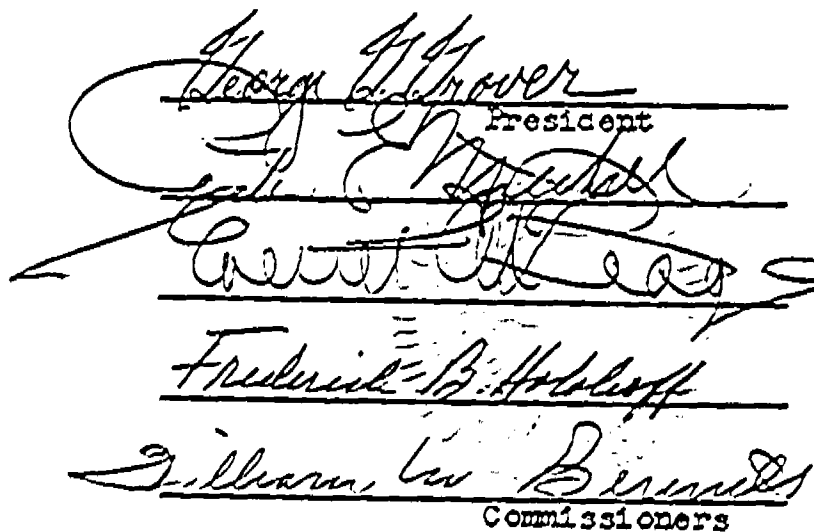 George G. Grover
President
E. Mitchell
Frederick B. Holoboff
William M. Bennett
Commissioners